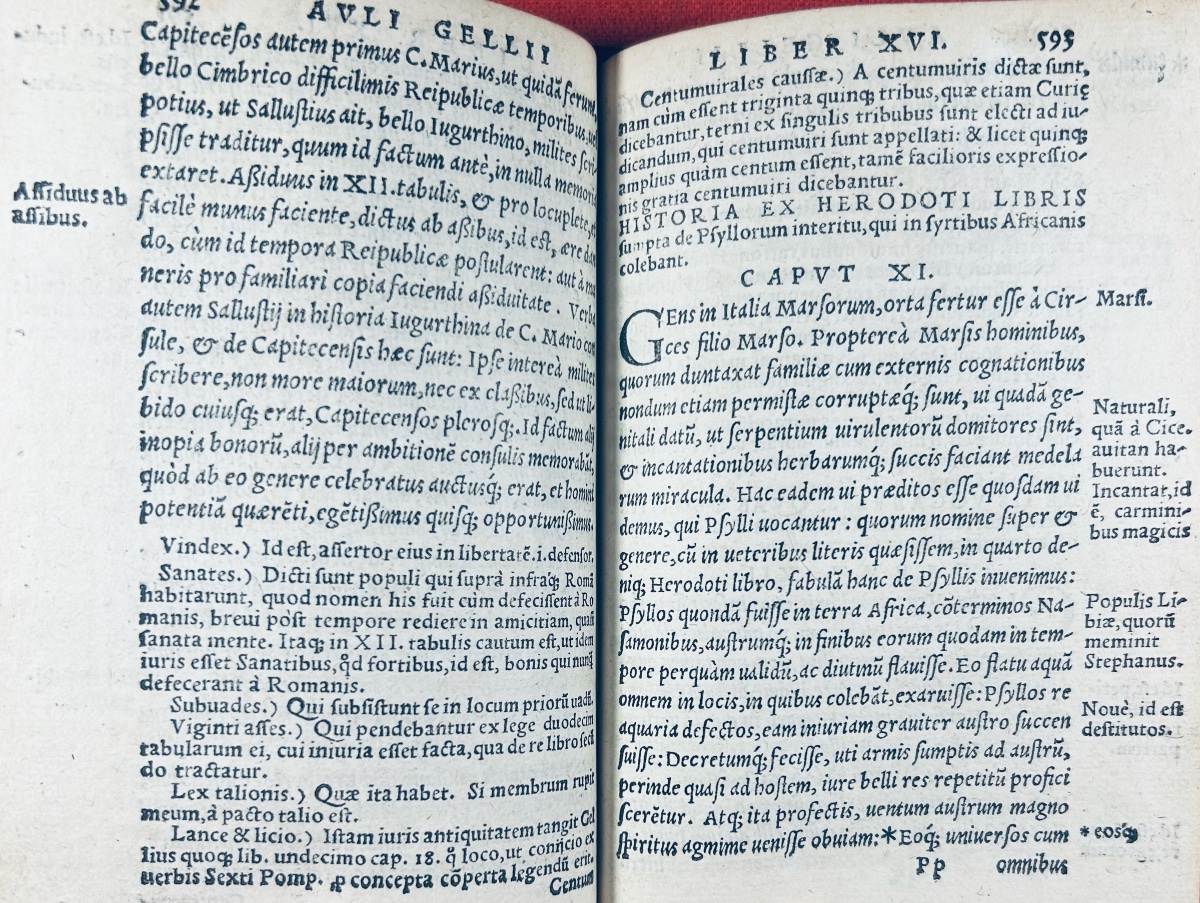 592
AVLI GELLII
Capitecēsos autem primus C. Marius, ut quidā ferunt,
bello Cimbrico difficilimis Reipublicæ temporibus, uel
potius, ut Sallustius ait, bello Iugurthino, milites scri-
psisse traditur, quum id factum antè, in nulla memoria
extaret. Aßiduus in XII. tabulis, & pro locuplete, &
Aßiduus ab
assibus.
facilè munus faciente, dictus ab aßibus, id est, ære dan
do, cùm id tempora Reipublicæ postularent: aut à mu
neris pro familiari copia faciendi aßiduitate. Verba
autem Sallustij in historia Iugurthina de C. Mario con
sule, & de Capitecensis hæc sunt: Ipse intereà milites
scribere, non more maiorum, nec ex claßibus, sed ut li-
bido cuiusq; erat, Capitecensos plerosq;. Id factum alij
inopia bonorū, alij per ambitionē consulis memorabāt,
quòd ab eo genere celebratus auctusq; erat, et homini
potentiā quærēti, egētißimus quisq; opportunißimus.
Vindex.) Id est, assertor eius in libertatē .i. defensor.
Sanates.) Dicti sunt populi qui suprà infraq; Romā
habitarunt, quod nomen his fuit cùm defecissent à Ro
manis, breui pòst tempore rediere in amicitiam, quasi
sanata mente. Itaq; in XII. tabulis cautum est, ut idem
iuris esset Sanatibus, qd fortibus, id est, bonis qui nunq̄
defecerant à Romanis.
Subuades.) Qui subsistunt se in locum priorū uadū.
Viginti asses.) Qui pendebantur ex lege duodecim
tabularum ei, cui iniuria esset facta, qua de re libro secū
do tractatur.
Lex talionis.) Quæ ita habet. Si membrum rupit
meum, à pacto talio est.
Lance & licio.) Istam iuris antiquitatem tangit Gel
lius quoq; lib. undecimo cap. 18. q̄ loco, ut conijcio ex
uerbis Sexti Pomp. ꝓ concepta cōperta legendū erit.
Centum
LIBER XVI.
593
Centumuirales caussæ.) A centumuiris dictæ sunt,
nam cùm essent triginta quinq; tribus, quæ etiam Curię
dicebantur, terni ex singulis tribubus sunt electi ad iu-
dicandum, qui centumuiri sunt appellati: & licet quinq;
amplius quàm centum essent, tamē facilioris expressio-
nis gratia centumuiri dicebantur.
HISTORIA EX HERODOTI LIBRIS
sumpta de Psyllorum interitu, qui in syrtibus Africanis
colebant.
CAPVT XI.
GEns in Italia Marsorum, orta fertur esse à Cir-
Marsi.
ces filio Marso. Propter eà Marsis hominibus,
quorum duntaxat familiæ cum externis cognationibus
nondum etiam permistæ corruptæq; sunt, ui quadā ge-
nitali datū, ut serpentium uirulentorū domitores sint,
& incantationibus herbarumq; succis faciant medela
rum miracula. Hac eadem ui præditos esse quosdam ui
demus, qui Psylli uocantur: quorum nomine super &
genere, cū in ueteribus literis quæsissem, in quarto de-
niq; Herodoti libro, fabulā hanc de Psyllis inuenimus:
Naturali,
quā à Cice.
auitan ha-
buerunt.
Incantat, id
ē, carmini-
bus magicis
Psyllos quondā fuisse in terra Africa, cōterminos Na-
samonibus, austrumq; in finibus eorum quodam in tem-
pore perquàm ualidū, ac diutinū flauisse. Eo flatu aquā
omnem in locis, in quibus colebāt, exaruisse: Psyllos re
Populis Li-
biæ, quorū
meminit
Stephanus.
aquaria defectos, eam iniuriam grauiter austro succen
suisse: Decretumq; fecisse, uti armis sumptis ad austrū,
Nouè, id est
destitutos.
perinde quasi ad hostem, iure belli res repetitū profici
scerētur. Atq; ita profectis, uentum austrum magno
spiritus agmime uenisse obuiam: *Eoq; uniuersos cum
* eosq;
Pp
omnibus